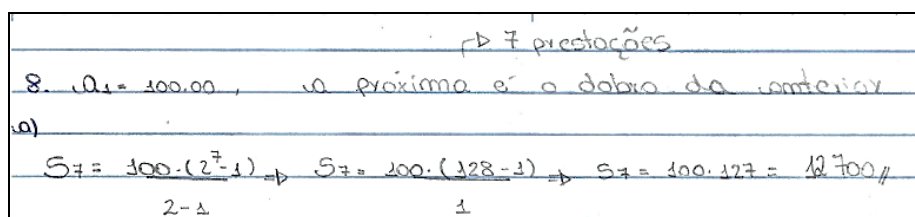 → 7 prestações
8. a₁ = 100.00, a próxima é o dobro da anterior
a)
S₇ = 100.(2⁷-1)/2-1 ⇒ S₇ = 100.(128-1)/1 ⇒ S₇ = 100.127 = 12700//